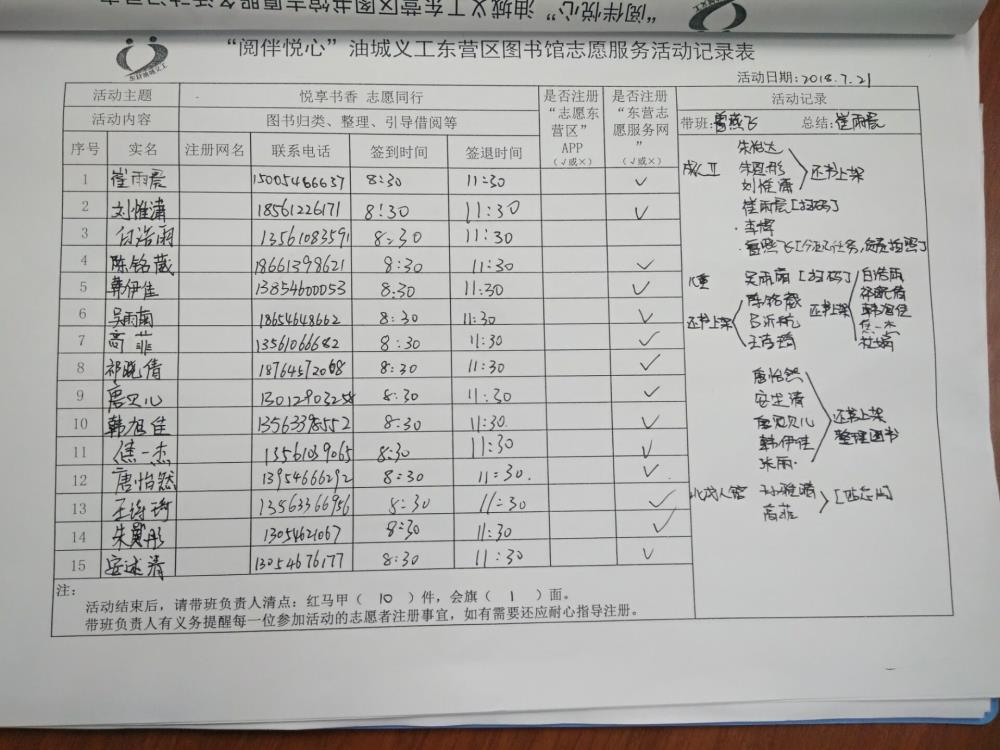 “阅伴悦心”油城义工东营区图书馆志愿服务活动记录表
活动日期:2018.7.21
活动主题 悦享书香 志愿同行 是否注册“志愿东营区”APP（√或×） 是否注册“东营志愿服务网”（√或×） 活动记录
活动内容 图书归类、整理、引导借阅等
带班:曹燕飞 总结:崔雨辰
序号 实名 注册网名 联系电话 签到时间 签退时间
1 崔雨辰 15005466637 8:30 11:30 √
2 刘惟潇 18561226171 8:30 11:30 √
3 白浩雨 13561083591 8:30 11:30
4 陈铭葳 18661398621 8:30 11:30 √
5 韩伊佳 13854600053 8:30 11:30 √
6 吴雨南 18654648662 8:30 11:30 √
7 高菲 13561066682 8:30 11:30 √
8 祁晓倩 18764572068 8:30 11:30 √
9 唐贝儿 13012903258 8:30 11:30 √
10 韩旭佳 13563398552 8:30 11:30 √
11 焦一杰 13561039065 8:30 11:30 √
12 唐怡然 13954666292 8:30 11:30 √
13 13563366956 8:30 11:30 √
14 朱冀彤 13054621067 8:30 11:30 √
15 安述清 13054676177 8:30 11:30 √
成人Ⅱ
朱怡达
朱冀彤 还书上架
刘惟潇
崔雨辰[扫码]
李博
儿童 吴雨南[扫码] 白浩雨
陈铭葳 祁晓倩
还书上架 还书上架 韩旭佳
焦一杰
唐怡然
安述清 还书上架
唐贝儿 整理图书
韩伊佳
张雨
高菲
注:
活动结束后，请带班负责人清点：红马甲（ 10 ）件，会旗（ 1 ）面。
带班负责人有义务提醒每一位参加活动的志愿者注册事宜，如有需要还应耐心指导注册。